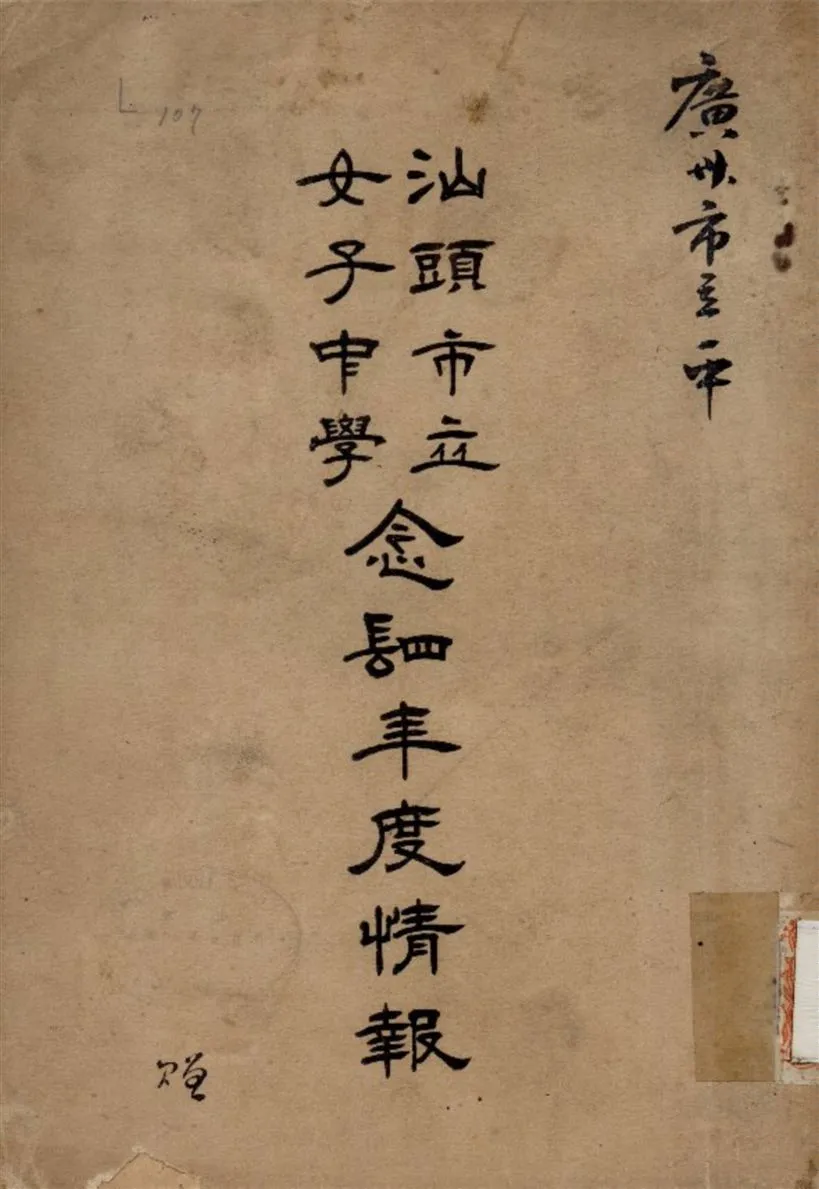 廣州市立一中
汕頭市立
女子中學
念䦉年度情報
L 107